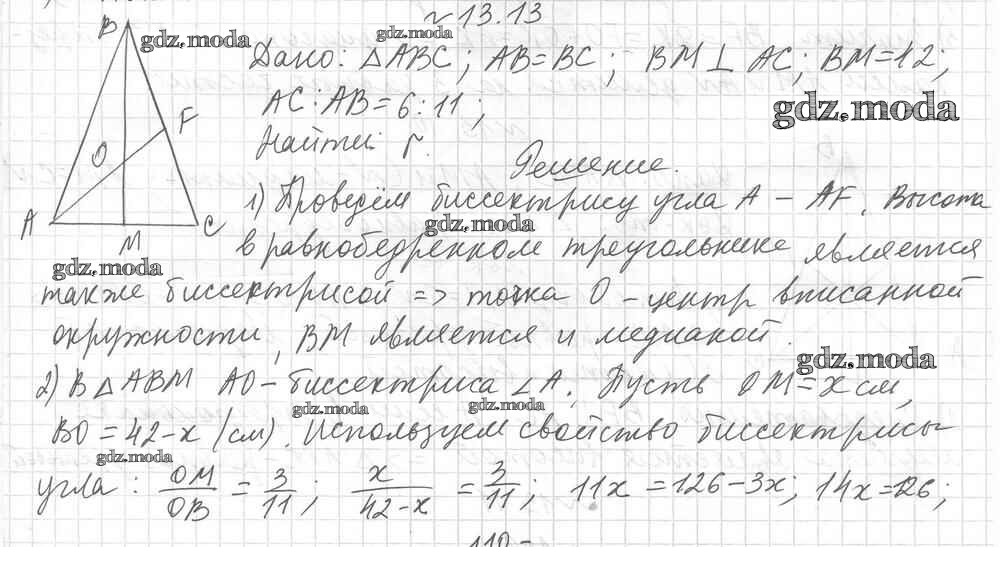 №13.13
Дано: △ABC; AB=BC; BM⊥AC; BM=42;
AC:AB=6:11;
Найти r.
Решение.
1) Проведём биссектрису угла A – AF. Высота
в равнобедренном треугольнике является
также биссектрисой => точка O – центр вписанной
окружности, BM является и медианой.
2) В △ABM AO – биссектриса ∠A. Пусть OM=x см,
BO=42-x (см). Используем свойство биссектрисы
угла: OM/OB = 3/11; x/42-x = 3/11; 11x=126-3x; 14x=126;
B
F
O
A
M
C
gdz.moda
gdz.moda
gdz.moda
gdz.moda
gdz.moda
gdz.moda
gdz.moda
gdz.moda
gdz.moda